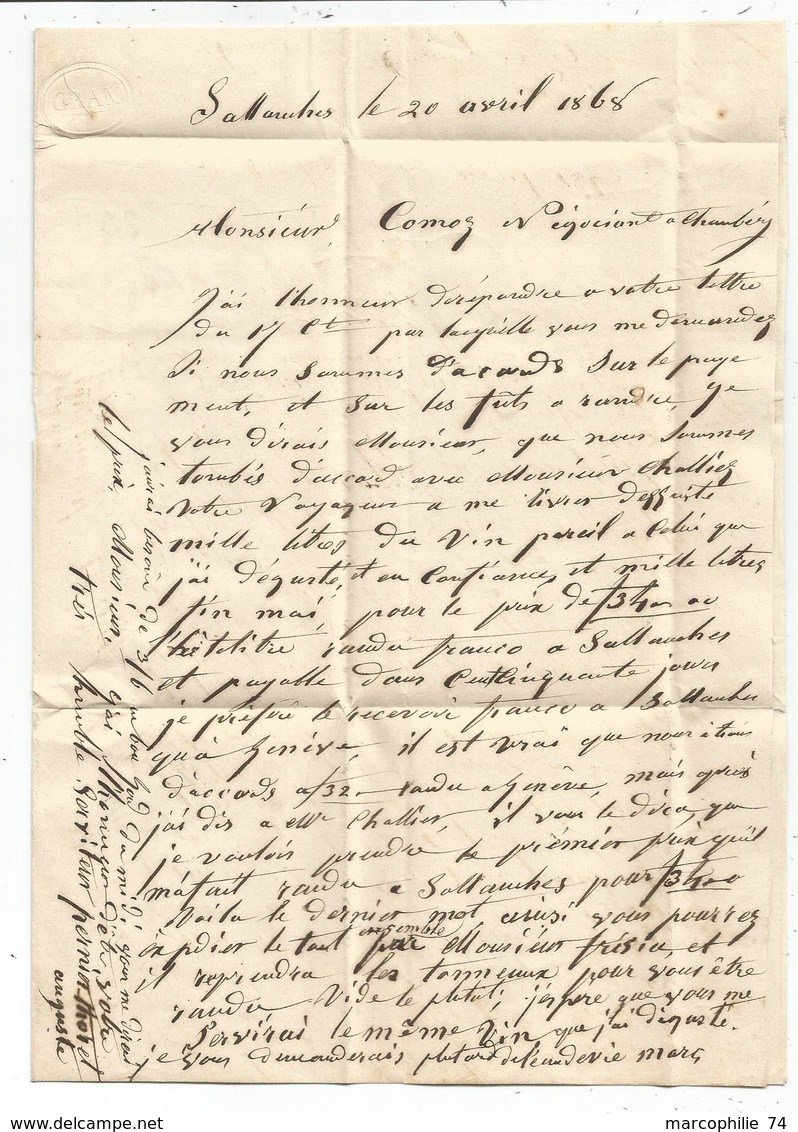 GRAN
Sallanches le 20 avril 1868
Monsieur, Comoz Négociant a Chambéry
J'ai l'honneur de répondre a votre lettre
du 17 Ct par laquélle vous me demandez
Si nous sommes d'acords sur le paye
ment, et sur les futs a randre, Je
vous dirais Monsieur, que nous sommes
tombés d'accord avec Monsieur Challier
votre voyageur a me livrer desuite
mille litres du vin pareil a Celui que
j'ai dégusté, et en Confiance, et mille litres
fin mai, pour le prix de 34
l'hétolitre randu franco a Sallanches
et payable dans Centcinquante jours
je préfère le recevoir franco a Sallanches
qu'à Genève, il est vrai que nous étions
d'accords a 32 randu a Genève, mais après
j'ai dis a Mr Challier, il vous le dira, que
je voulois prendre le prémier prix qu'il
m'afait randu a Sallanches pour 34
Voila le dernier mot, ainsi vous pourrez
éxpdier le tout ensemble par Monsieur frisia, et
il reprendra les tonneaux pour vous être
randu vide le plutot; j'espere que vous me
Servirai le même vin, que j'ai dégusté.
je vous demanderais plutard de l'eaudevie marc
j'aurai besoin de 3/6 du midi vous me dirai
le prix. Monsieur, j'ai l'honneur d'être votre
très humble Serviteur
auguste
marcophilie 74